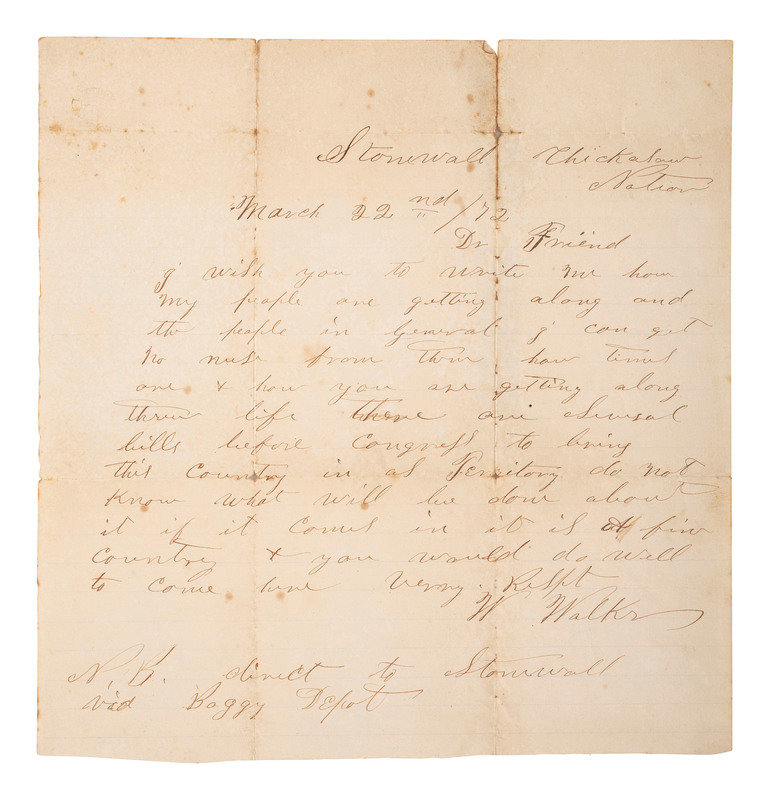 Stonewall Chickasaw
Nation
March 22nd/72
Dr Friend
I wish you to write me how
my people are getting along and
the people in General I can get
no nuse from them how times
are & how you are getting along
threw life there are several
bills before Congress to bring
this country in as Territory do not
know what will be done about
it if it comes in it is A fine
country & you would do well
to come here Verry Respt
W Walker
N.B. direct to Stonewall
via Boggy Depot